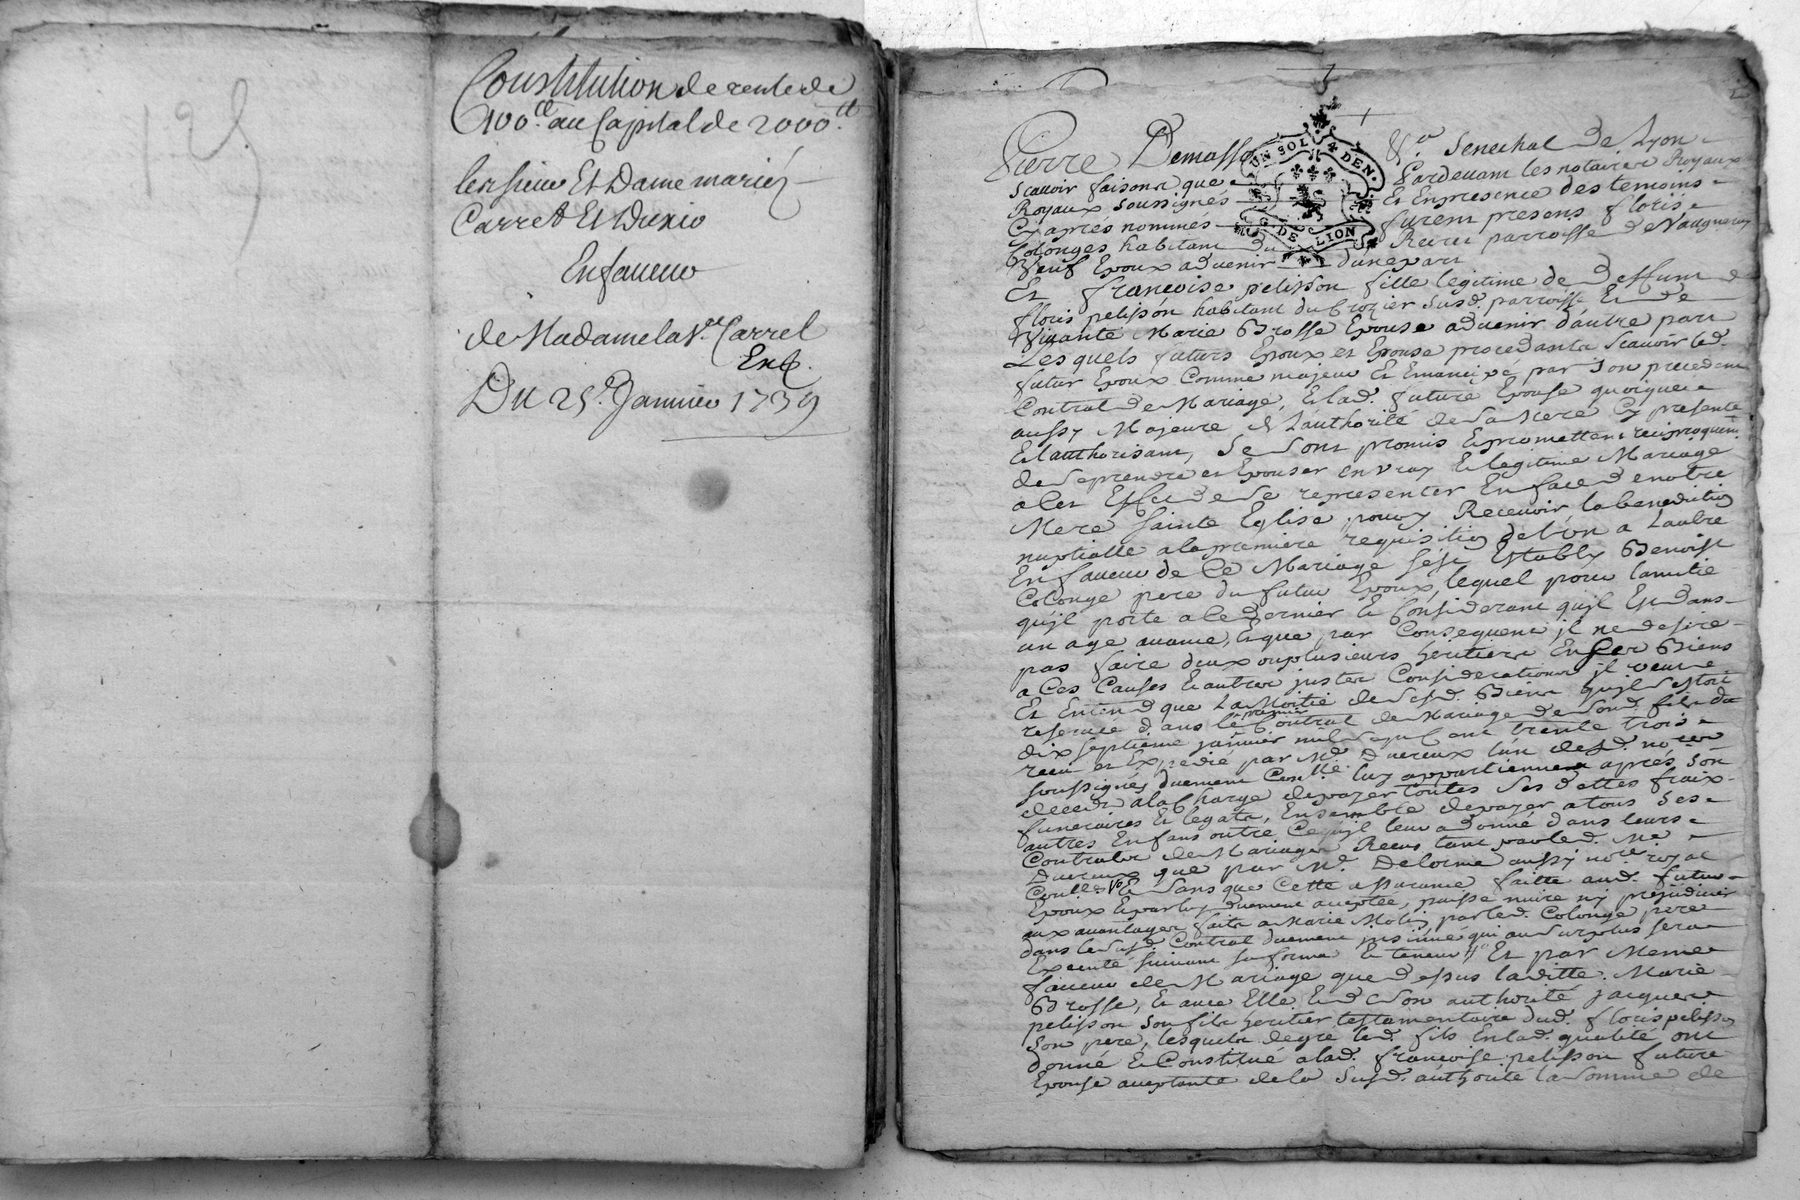 125
Constitution de rente de
100ₗₜ au Capital de 2000ₗₜ
les sieur Et Dame mariéz
Carret Et
En faueur
de Madame la Vᵉ Carrel
Du 25ᵉ Januier 1739
UN SOL 4 DEN.
G. DE LION
Pierre Demasso Senechal de Lyon
scauoir faisons que Pardeuant les notaires Royaux
Royaux soussignés Et En presence des temoins
Cy aprés nommés furent presens floris
Colonges habitant du parroisse de Vaugneray
Veuf Epoux aduenir d'une part
Et françoise pelisson fille legitime de deffunt
floris pelisson habitant du Crozier susd. parroisse Et de
Viuante Marie Brosse Epouse aduenir d'autre part
Les quels futurs Epoux et Epouse procedants scauoir led.
futur Epoux Comme majeur Et Emancipé par son precedent
Contrat de Mariage, Et lad. future Epouse quoique
aussy Majeure de L'authorité de sa Mere Cy presente
Et l'authorisant, se sont promis Et promettent reciproquemt
de se prendre et Epouser en vray Et legitime Mariage
a Cet Effet de se representer En face de notre
Mere Sainte Eglise pour y Receuoir la benediction
nuptialle a la premiere requisition de l'un a L'autre
En faueur de Ce Mariage s'est Etably Benoist
Colonge pere du futur Epoux, lequel pour l'amitié
qu'il porte a Ce dernier Et Considerant qu'il Est dans
un age auancé, Et que par Consequent il ne desire
pas faire deux ou plusieurs heritiers En ses Biens
a Ces Causes Et autres justes Considerations il veut
Et Entend que La Moitié de sesd. Biens qu'il s'estoit
reservée dans le premier Contrat de Mariage de sond. fils du
dix septieme januier mil sept cent trente trois
receu et Expedié par Me. Duereux l'un desd. nores
soussignés duement Conllé. luy appartiennent aprés son
decedz a la Charge de payer toutes ses dettes fraix
funeraires Et legats, Ensemble de payer a tous ses
autres Enfans outre Ce qu'il leur a donné dans leurs
Contrats de Mariages Receus tant par led. Me
Duereux que par Me. Delorme aussy nore royal
Conllés Et sans que Cette assurance faitte aud. futur
Epoux Et par luy duement acceptée, puisse nuire ny prejudicier
aux auantages faits a Marie Molin par led. Colonge pere
dans le susd. Contrat duement insinué qui au surplus sera
Executé suiuant sa forme Et teneur // Et par Meme
faueur de Mariage que dessus laditte Marie
Brosse, Et auec Elle Et de son authorité jacques
pelisson son fils heritier testamentaire dud. floris pelisson
son pere, lesquels de gré led. fils En lad. qualité ont
donné Et Constitué a lad. françoise pelisson future
Epouse acceptante de la susd. authorité la somme de